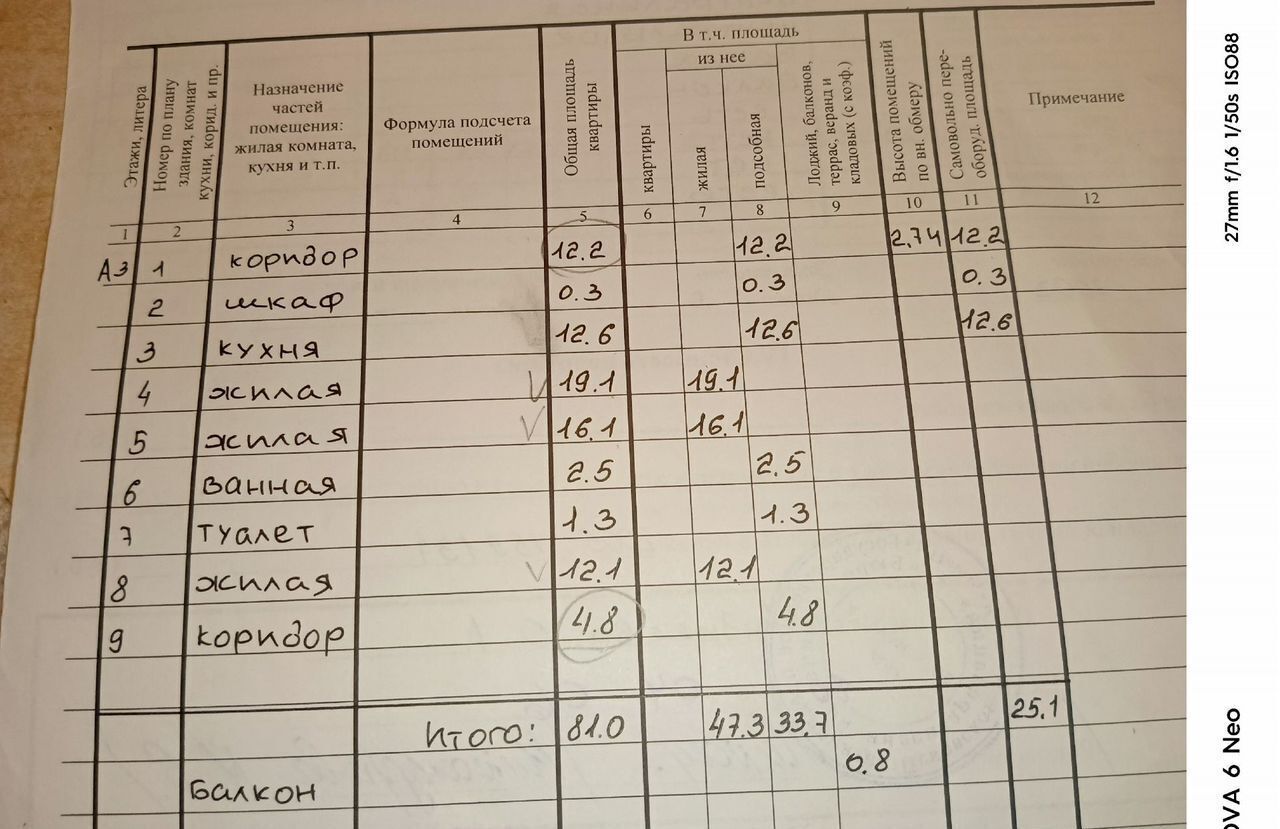 В т.ч. площадь
из нее
Этажи, литера
Номер по плану здания, комнат кухни, корид. и пр.
Назначение частей помещения: жилая комната, кухня и т.п.
Формула подсчета помещений
Общая площадь квартиры
квартиры
жилая
подсобная
Лоджий, балконов, террас, веранд и кладовых (с коэф.)
Высота помещений по вн. обмеру
Самовольно пере-оборуд. площадь
Примечание
1 2 3 4 5 6 7 8 9 10 11 12
А3 1 коридор 12.2 12.2 2,74 12.2
2 шкаф 0.3 0.3 0.3
3 кухня 12.6 12.6 12.6
4 жилая 19.1 19.1
5 жилая 16.1 16.1
6 ванная 2.5 2.5
7 туалет 1.3 1.3
8 жилая 12.1 12.1
9 коридор 4.8 4.8
Итого: 81.0 47.3 33.7 25.1
Балкон 0.8
27mm f/1.6 1/50s ISO88
OVA 6 Neo